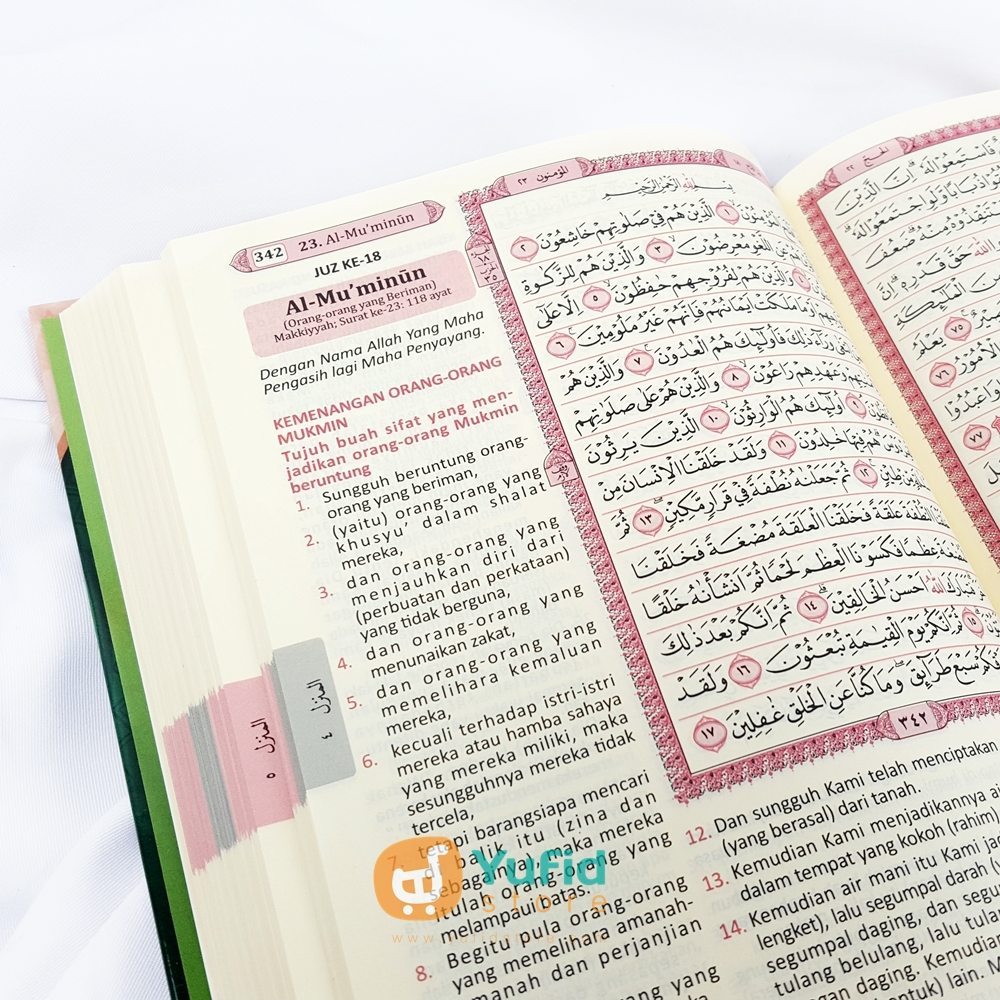 342 23. Al-Mu'minūn
JUZ KE-18
Al-Mu'minūn
(Orang-orang yang Beriman)
Makkiyyah; Surat ke-23: 118 ayat
Dengan Nama Allah Yang Maha
Pengasih lagi Maha Penyayang.
KEMENANGAN ORANG-ORANG
MUKMIN
Tujuh buah sifat yang men-
jadikan orang-orang Mukmin
beruntung
1. Sungguh beruntung orang-
orang yang beriman,
2. (yaitu) orang-orang yang
khusyu' dalam shalat
mereka,
3. dan orang-orang yang
menjauhkan diri dari
(perbuatan dan perkataan)
yang tidak berguna,
4. dan orang-orang yang
menunaikan zakat,
5. dan orang-orang yang
memelihara kemaluan
mereka,
6. kecuali terhadap istri-istri
mereka atau hamba sahaya
yang mereka miliki, maka
sesungguhnya mereka tidak
tercela,
7. tetapi barangsiapa mencari
di balik itu (zina dan
sebagainya), maka mereka
itulah orang-orang yang
melampaui batas.
8. Begitu pula orang-orang
yang memelihara amanah-
amanah dan perjanjian
المؤمنون ٢٣
بسم الله الرحمن الرحيم
١ الَّذِيْنَ هُمْ فِيْ صَلَاتِهِمْ خَاشِعُوْنَ ٢
اللَّغْوِ مُعْرِضُوْنَ ٣ وَالَّذِيْنَ هُمْ لِلزَّكٰوةِ
وَالَّذِيْنَ هُمْ لِفُرُوْجِهِمْ حٰفِظُوْنَ ٥ اِلَّا عَلٰٓى
اَوْ مَا مَلَكَتْ اَيْمَانُهُمْ فَاِنَّهُمْ غَيْرُ مَلُوْمِيْنَ ٦
وَرَآءَ ذٰلِكَ فَاُولٰٓئِكَ هُمُ الْعٰدُوْنَ ٧ وَالَّذِيْنَ هُمْ
وَعَهْدِهِمْ رَاعُوْنَ ٨ وَالَّذِيْنَ هُمْ عَلٰى صَلَوٰتِهِمْ
اُولٰٓئِكَ هُمُ الْوٰرِثُوْنَ ١٠ الَّذِيْنَ يَرِثُوْنَ
هُمْ فِيْهَا خٰلِدُوْنَ ١١ وَلَقَدْ خَلَقْنَا الْاِنْسَانَ مِنْ
مِّنْ طِيْنٍ ١٢ ثُمَّ جَعَلْنٰهُ نُطْفَةً فِيْ قَرَارٍ مَّكِيْنٍ ١٣ ثُمَّ
النُّطْفَةَ عَلَقَةً فَخَلَقْنَا الْعَلَقَةَ مُضْغَةً فَخَلَقْنَا
عِظٰمًا فَكَسَوْنَا الْعِظٰمَ لَحْمًا ثُمَّ اَنْشَأْنٰهُ خَلْقًا
اللّٰهُ اَحْسَنُ الْخَالِقِيْنَ ١٤ ثُمَّ اِنَّكُمْ بَعْدَ ذٰلِكَ
١٥ ثُمَّ اِنَّكُمْ يَوْمَ الْقِيٰمَةِ تُبْعَثُوْنَ ١٦ وَلَقَدْ
سَبْعَ طَرَآئِقَ وَمَا كُنَّا عَنِ الْخَلْقِ غٰفِلِيْنَ ١٧
٣٤٢
12. Dan sungguh Kami telah menciptakan
(yang berasal) dari tanah.
13. Kemudian Kami menjadikannya
dalam tempat yang kokoh (rahim)
14. Kemudian air mani itu Kami
lengket), lalu segumpal darah
segumpal daging, dan
tulang belulang, lalu
dengan daging. Kemudian
lain.
الحج ٢٢
فَاسْتَمِعُوْا لَهٗ اِنَّ الَّذِيْنَ
ذُبَابًا وَّلَوِ اجْتَمَعُوْا لَهٗ
مِنْهُ ضَعُفَ
اللّٰهَ حَقَّ قَدْرِهٖ اِنَّ
٧٥ يَعْلَمُ
الْاُمُوْرُ ٧٦
وَاعْبُدُوْا
٧٧
المنزل ٤
المنزل ٥
Yufid
store